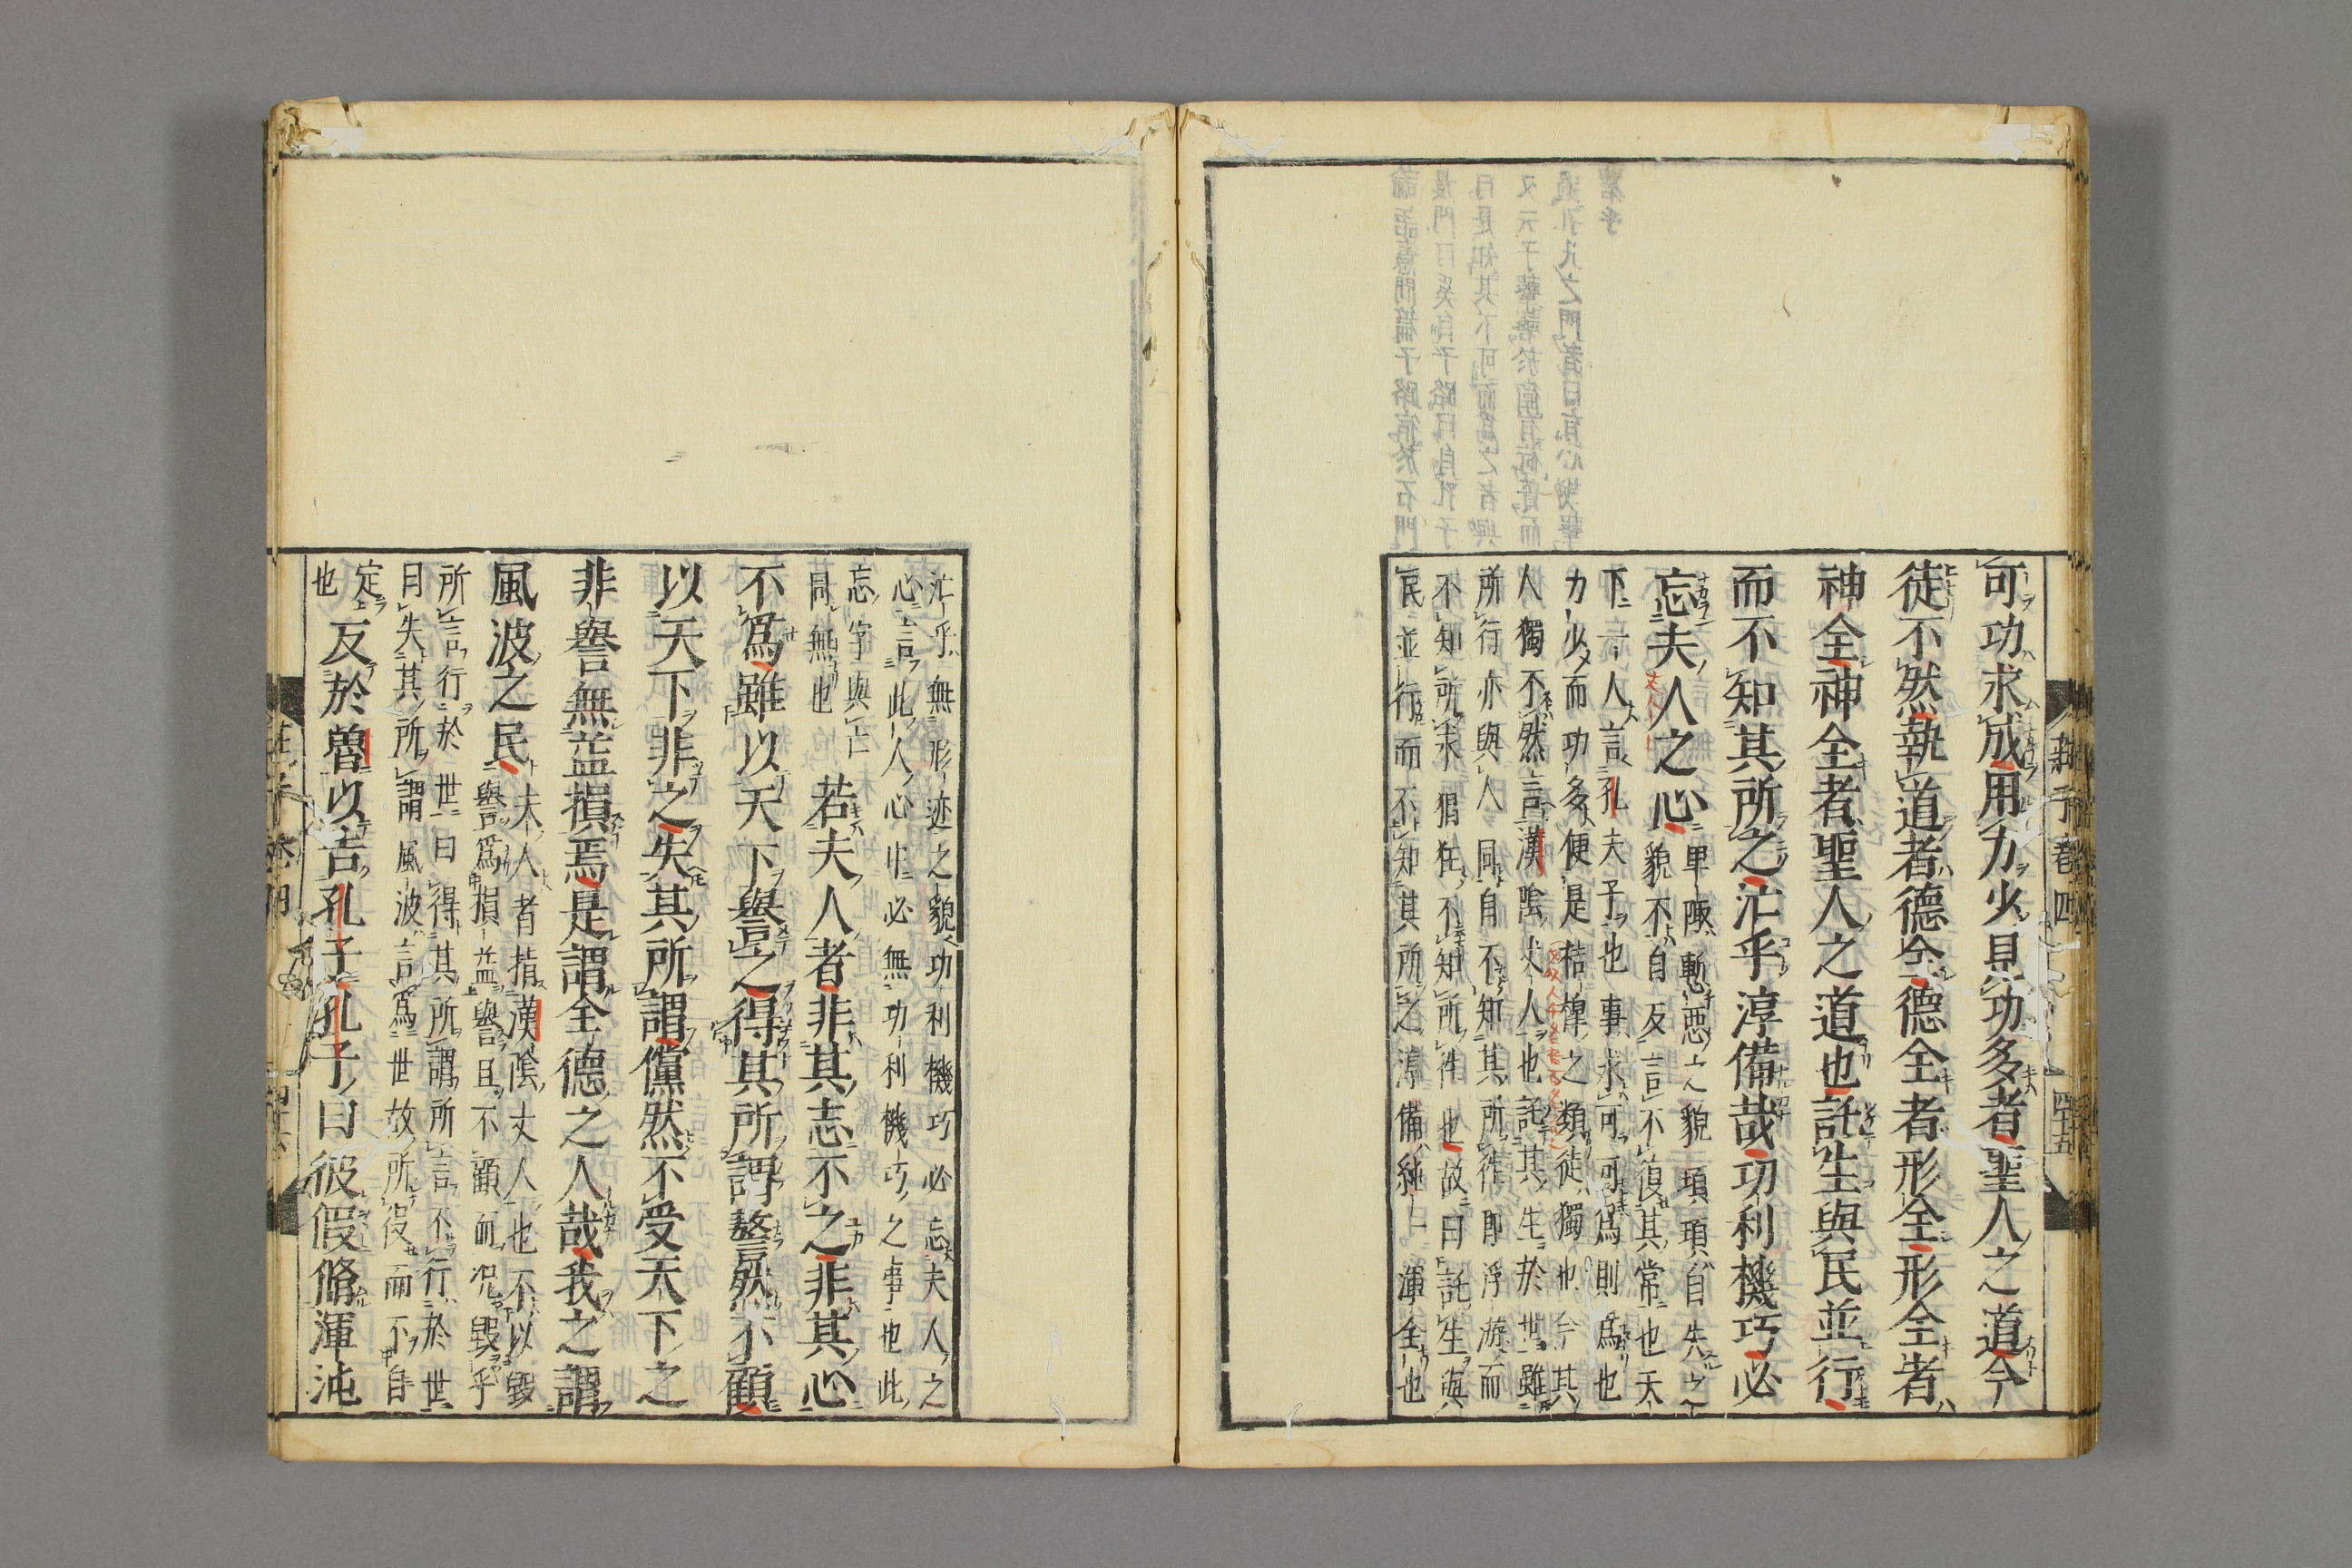 可功求成用力少見功多者聖人之道今
徒不然執道者德全德全者形全形全者
神全神全者聖人之道也託生與民並行
而不知其所之汒乎淳備哉功利機巧必
忘夫人之心
卑陬慙恧之貌頊頊自失之
貌不自反言不復其常也天
下一人言孔夫子也事求可可為則為也
力少而功多便是桔槔之類徒獨也今其
人獨不然言漢陰丈人也託其生於世雖
所行亦與人同自不知其所徃即浮游而
不知所求猖狂不知所徃也故曰託生與
民並行而不知其所之淳備純一渾全也
汒乎無形迹之貌功利機巧必忘夫人之
心言此人心中必無功利機巧之事也此
忘字與亡
同無也
若夫人者非其志不之非其心
不爲雖以天下譽之得其所謂謷然不顧
以天下非之失其所謂儻然不受天下之
非譽無益損焉是謂全德之人哉我之謂
風波之民
夫人者指漢陰丈人也不以毀
譽爲損益譽且不顧而况毀乎
所言行於世曰得其所謂所言不行於世
曰失其所謂風波言為世故所役而不自
定
也
反於魯以告孔子孔子曰彼假脩渾沌